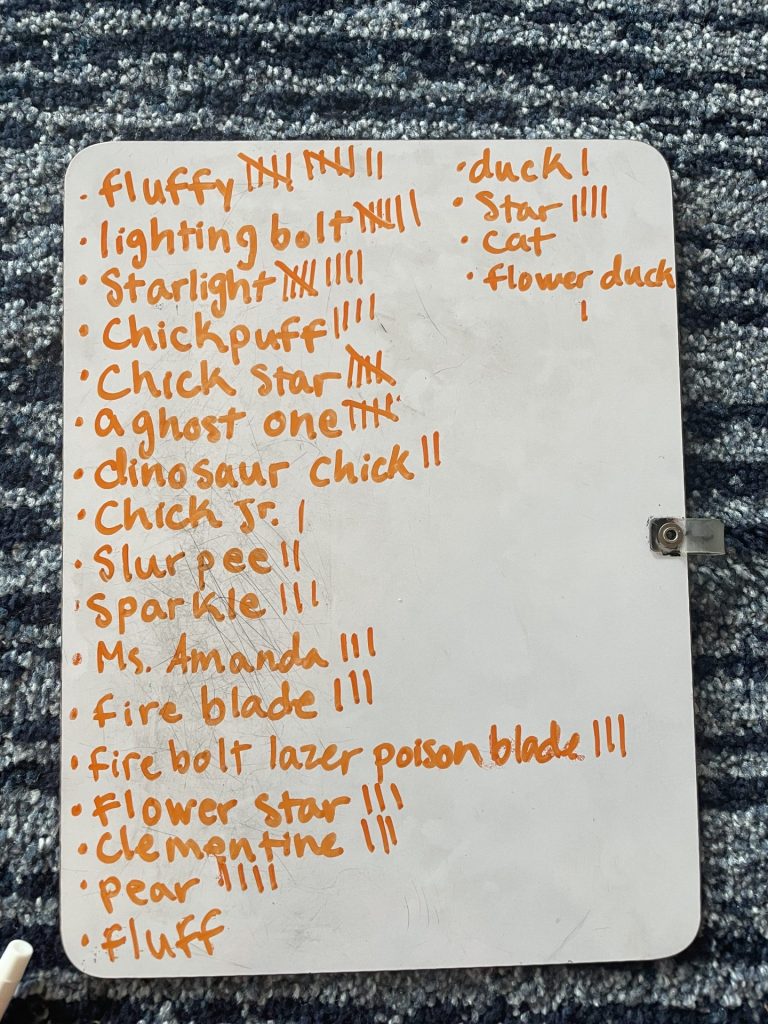 • fluffy 𝍸 𝍸 ||
• lighting bolt 𝍸 ||
• Starlight 𝍸 ||||
• Chickpuff ||||
• Chick Star 𝍸
• a ghost one 𝍸
• dinosaur Chick ||
• Chick Jr. |
• Slurpee ||
• Sparkle |||
• Ms. Amanda |||
• fire blade |||
• fire bolt lazer poison blade |||
• Flower Star |||
• Clementine |||
• pear ||||
• fluff
• duck |
• Star ||||
• Cat
• flower duck
|